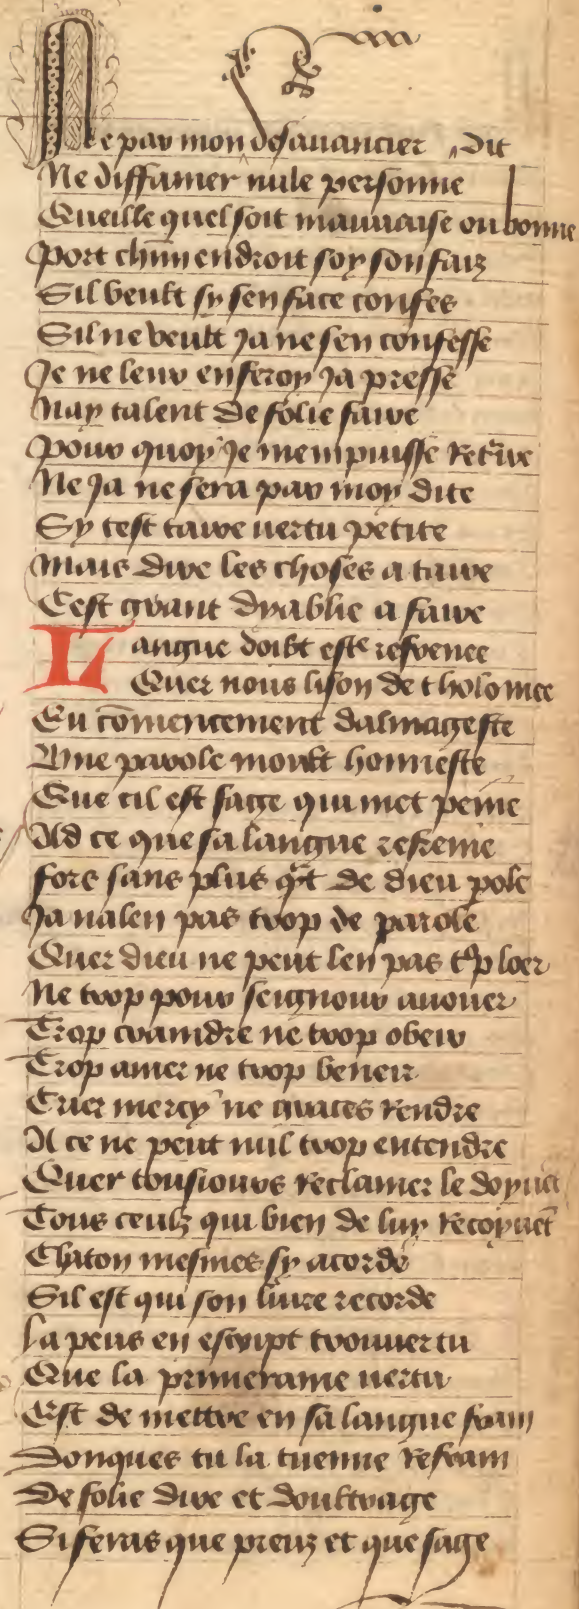 Ne par mon desauancier dit
Ne diffamer nule personne
Queille quel soit mauuaise ou bonne
Port chūn endroit soy son faiz
Sil veult sy sen face confes
Sil ne veult ja ne sen confesse
Je ne leur en feroy ja presse
Nay talent de folie faire
Pour quoy je mempuisse ret͛ire
Ne ja ne sera par moy dite
Sy cest taire uertu petite
Mais dire les choses a taire
Cest grant dyablie a faire
Langue doibt est͛e refrenee
Quer nous lison de tholomee
Eu cōmencement dalmageste
Une parole moult honneste
Que cil est sage qui met peine
Ad ce que sa langue refreine
fors sans plus qⁿt de dieu pole
Ja nalen pas trop de parole
Quer dieu ne peut len pas t°p loer
Ne trop pour seignour auouer
Trop craindre ne trop obeir
Trop amer ne trop beneir
Crier mercy ne graces rendre
A ce ne peut nul trop entendre
Quer tousiours reclamer le doyuēt
Tous ceulz qui bien de luy recoyuēt
Chaton mesmes sy acorde
Sil est qui son liure recorde
La peus en escript trouuer tu
Que la primeraine uertu
Est de mettre en sa langue frain
Donques tu la tienne refrain
De folie dire et doultrage
Si feras que preuz et que sage